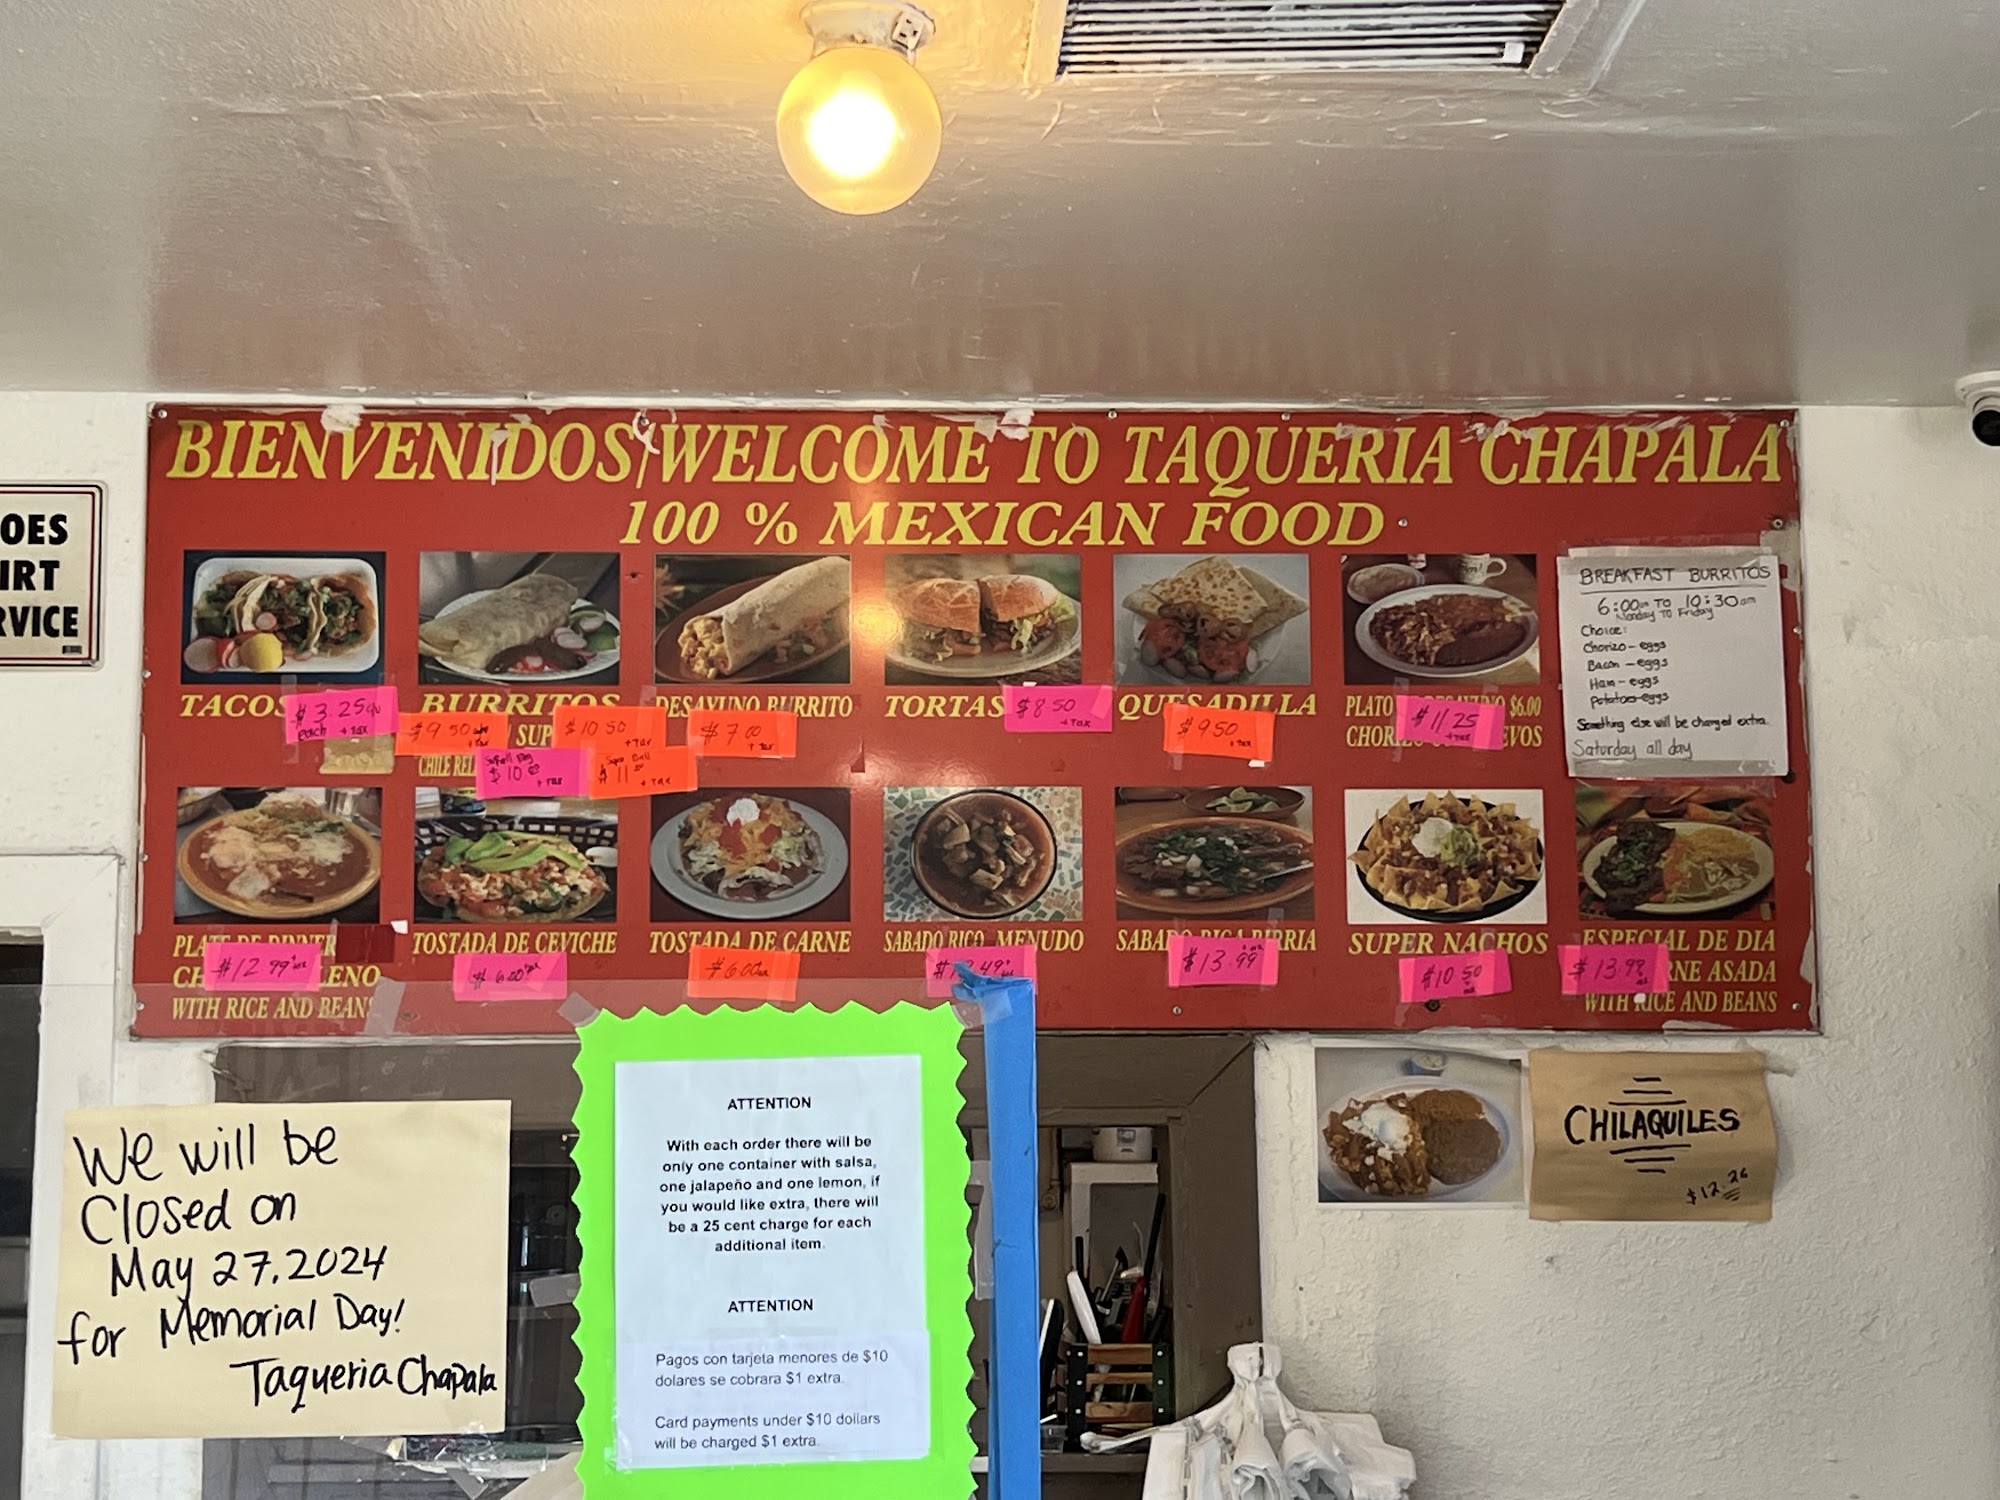 BIENVENIDOS/WELCOME TO TAQUERIA CHAPALA
100 % MEXICAN FOOD
OES
IRT
RVICE
TACOS
$3.25
each + tax
BURRITOS
$9.50
+ tax
SUP
$10.50
+ tax
CHILE REL
$10
+ tax
$11
+ tax
DESAYUNO BURRITO
$7.00
+ tax
TORTAS
$8.50
+ tax
QUESADILLA
$9.50
+ tax
PLATO DESAYUNO $6.00
$11.25
+ tax
BREAKFAST BURRITOS
6:00am TO 10:30am
Monday TO Friday
Choice:
Chorizo-eggs
Bacon-eggs
Ham-eggs
Potatoes-eggs
Something else will be charged extra.
Saturday all day
PLATE DE DINNER
$12.99
CH LENO
WITH RICE AND BEANS
TOSTADA DE CEVICHE
$6.00
TOSTADA DE CARNE
$6.00
SABADO RICO MENUDO
SABADO RICA BIRRIA
$13.99
SUPER NACHOS
$10.50
ESPECIAL DE DIA
$13.99
RNE ASADA
WITH RICE AND BEANS
We will be
Closed on
May 27, 2024
for Memorial Day!
Taqueria Chapala
ATTENTION
With each order there will be
only one container with salsa,
one jalapeño and one lemon, if
you would like extra, there will
be a 25 cent charge for each
additional item.
ATTENTION
Pagos con tarjeta menores de $10
dolares se cobrara $1 extra.
Card payments under $10 dollars
will be charged $1 extra.
CHILAQUILES
$12.26